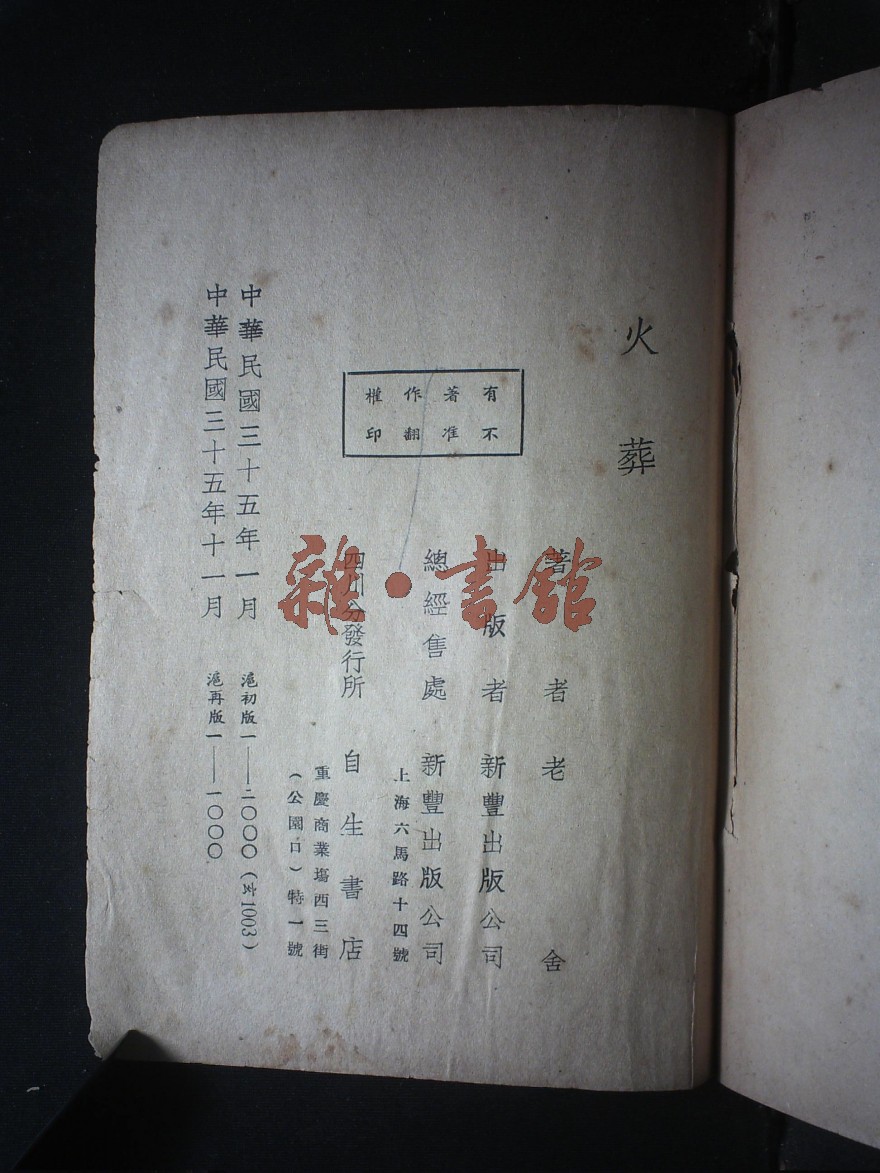 火葬
著者 老舍
出版者 新豐出版公司
總經售處 新豐出版公司
上海六馬路十四號
四川分發行所 自生書店
重慶商業場西三街
（公園口）特一號
有著作權
不准翻印
中華民國三十五年一月 滬初版一——二〇〇〇（文1003）
中華民國三十五年十一月 滬再版一——一〇〇〇
雜·書館